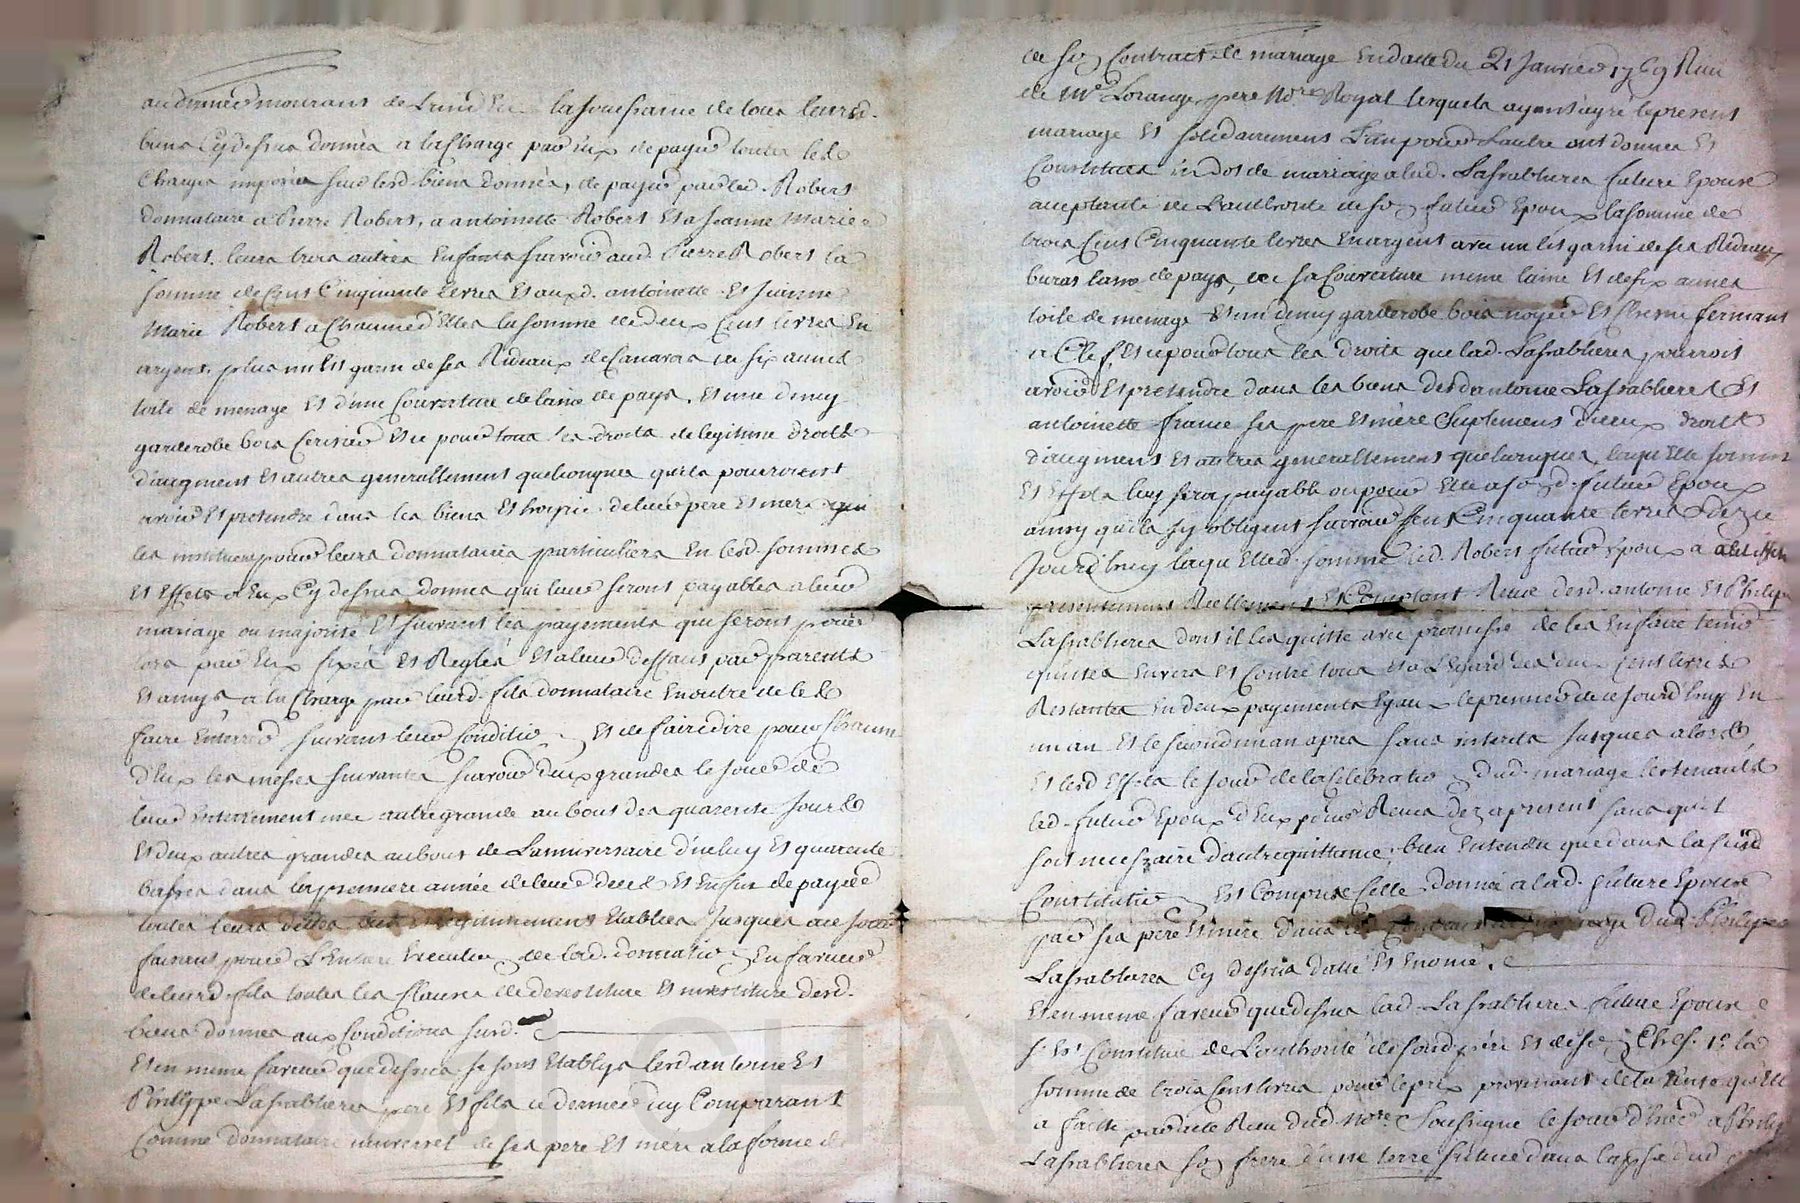 au dernier mourant de l'un d'eux la jouissance de tous leursd.
biens cy dessus donnés a la charge par eux de payer toutes les
charges imposées sur lesd. biens donnés, de payer par led. Robert
donnataire a Pierre Robert, a antoinette Robert et a jeanne Marie
Robert leurs trois autres enfants scavoir aud. Pierre Robert la
somme de cent cinquante livres et auxd. antoinette et jeanne
Marie Robert a chaune d'elles la somme de deux cent livres en
argent, plus un lit garni de ses Rideaux de canavas de six aunes
toile de menage et d'une couverture de laine de pays, et une demy
garderobe bois cerisier et ce pour tous les droits de legitime droits
d'augment et autres generallement quelconques qu'ils pourroient
avoir et pretendre dans les biens et hoirie de leur pere et mere qui
les instituent pour leurs donnataires particuliers en lesd. sommes
et effets a eux cy dessus donnés qui leur seront payables a leur
mariage ou majorité et suivant les payements qui seront pour
lors par eux fixés et Reglés et a leur deffaut par parents
et amys a la charge par leurd. fils donnataire en outre de les
faire enterrer suivant leur condition et de faire dire pour chacun
d'eux les messes suivantes scavoir deux grandes le jour de
leur enterrement une autre grande au bout des quarente jours
et deux autres grandes au bout de l'anniversaire d'iceluy et quarente
basses dans la premiere année de leur deces et enfin de payer
toutes leurs dettes legitimement etablies jusques a ce jour
faisant pour l'entiere execution de lad. donnation en faveur
de leurd. fils toutes les clauses de devestiture et investiture desd.
biens donnés aux conditions susd.
Et en meme faveur que dessus se sont etablys lesd. antoine et
Philippe Lasablieres pere et fils ce dernier icy comparant
comme donnataire universel de ses pere et mere a la forme de
de son contract de mariage en datte du 21 janvier 1769 Recu
de me Lorange pere nore Royal lesquels ayant agreé le present
mariage et solidairement l'un pour l'autre ont donnés et
constitués en dot de mariage a lad. Lasablieres future epouse
acceptante de l'authorité de son futur epoux la somme de
trois cent cinquante livres en argent avec un lit garni de ses Rideaux
buras laine de pays, de sa couverture meme laine et de six aunes
toile de menage et un demy garderobe bois noyer et fermant
a clef et ce pour tous les droits que lad. Lasablieres pourroit
avoir et pretendre dans les biens desd antoine Lasablieres et
antoinette france ses pere et mère suplement d'iceux droits
d'augment et autres generallement quelconques, laquelle somme
et effets luy sera payable ou pour elle a sond. futur epoux
ainsy qu'ils s'y obligent scavoir cent cinquante livres dezce
jourd'huy laquelled. somme led. Robert futur epoux a
presentement Reellement et comptant Receue desd. antoine et Philippe
Lasablieres dont il les quitte avec promesse de les en faire tenir
quittes envers et contre tous et a l'egard des deux cent livres
Restantes en deux payements egaux le premier de ce jourd'huy en
un an et le second un an apres sans interets jusques alors
et lesd effets le jour de la celebration dud. mariage les tenants
led. futur epoux d'eux pour Recus dez a present sans qu'il
soit necessaire d'autre quittance, bien entendu que dans la susd
constitution est comprise celle donnée a lad. future epouse
par ses pere et mere dans le contract de mariage dud. Philippe
Lasablieres cy dessus datté et enoncé.
Et en meme faveur que dessus lad. Lasablieres future epouse
s'est constitué de l'authorité de sond. père et de son chef 1° la
somme de trois cent livres pour le prix provenant de la vente qu'elle
a faite par acte Recu dud. nore soussigné le jour d'hier a Philippe
Lasablieres son frere d'une terre située dans la psse dud